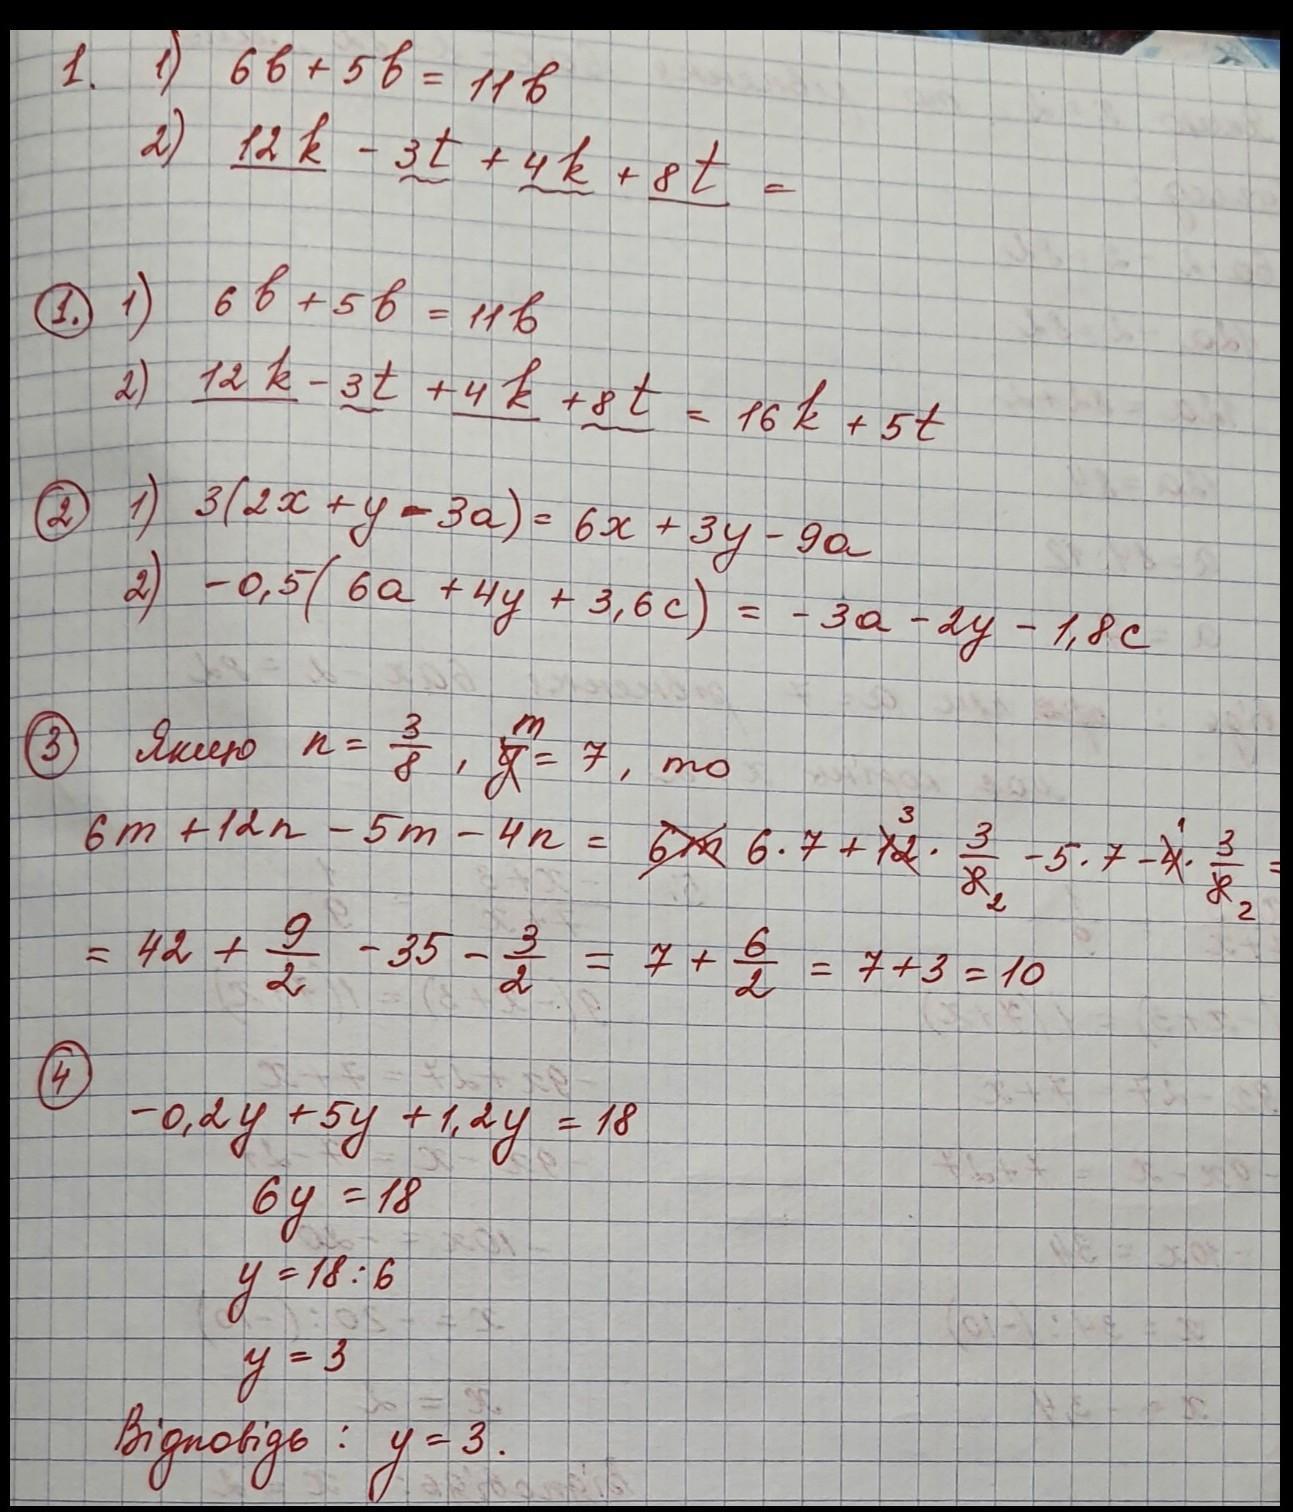 1. 1) 6b + 5b = 11b
2) 12k - 3t + 4k + 8t =
1. 1) 6b + 5b = 11b
2) 12k - 3t + 4k + 8t = 16k + 5t
2 1) 3(2x + y - 3a) = 6x + 3y - 9a
2) -0,5(6a + 4y + 3,6c) = -3a - 2y - 1,8c
3 Якщо n = 3/8, m = 7, то
6m + 12n - 5m - 4n = 6·7 + 12·3/8 - 5·7 - 4·3/8 =
= 42 + 9/2 - 35 - 3/2 = 7 + 6/2 = 7 + 3 = 10
4
-0,2y + 5y + 1,2y = 18
6y = 18
y = 18:6
y = 3
Відповідь: y = 3.